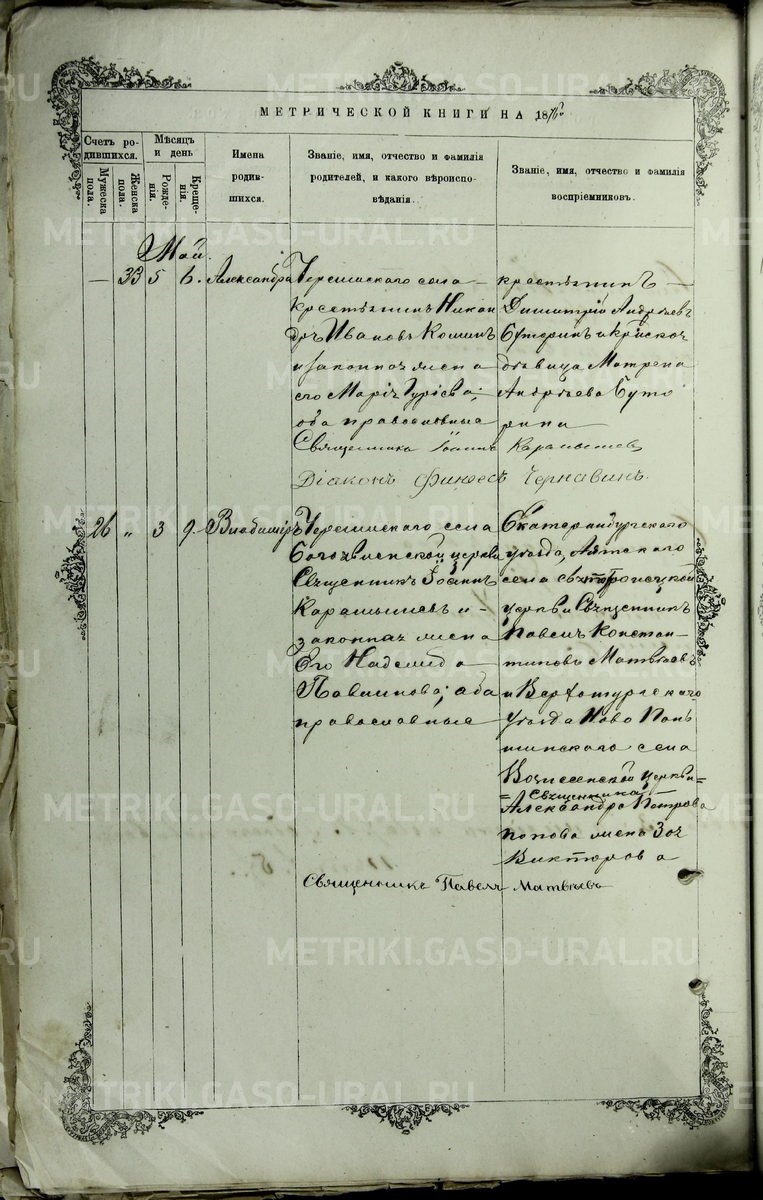 МЕТРИЧЕСКОЙ КНИГИ НА 1876
Счетъ родившихся.
Мужеска пола.
Женска пола.
Мѣсяцъ и день
Рожденія.
Крещенія.
Имена родившихся.
Званіе, имя, отчество и фамилія родителей, и какого вѣроисповѣданія.
Званіе, имя, отчество и фамилія воспріемниковъ.
Май.
— 33 5 6. Александра
села —
крестьянинъ Никан
дръ Ивановъ Кошинъ
и законная жена
его Марія Гуріева;
оба православные
крестьянинъ —
Димитрій Андреевъ
Буторинъ и крестьян.
дѣвица Матрена
Андреева Буто
рина
Священникъ Іоаннъ Карамышев
Діаконъ Финеесъ Чернавинъ.
26 „ 3 9. Владиміръ
села
Богоявленской церкви
Священникъ Іоаннъ
Карамышевъ и —
законная жена
Его Надежда
Павлинова; оба
православные
Екатеринбургскаго
уѣзда, Аятскаго
села свято Троицкой
церкви Священникъ
Павелъ Констан—
тиновъ Матвѣевъ
и Верхотурскаго
уѣзда Ново Пань
шинскаго села
Вознесенской церкви=
= Священника —
Александра Петрова
Попова жена Зоя
Викторова
Священникъ Павелъ Матвѣевъ
METRIKI.GASO-URAL.RU